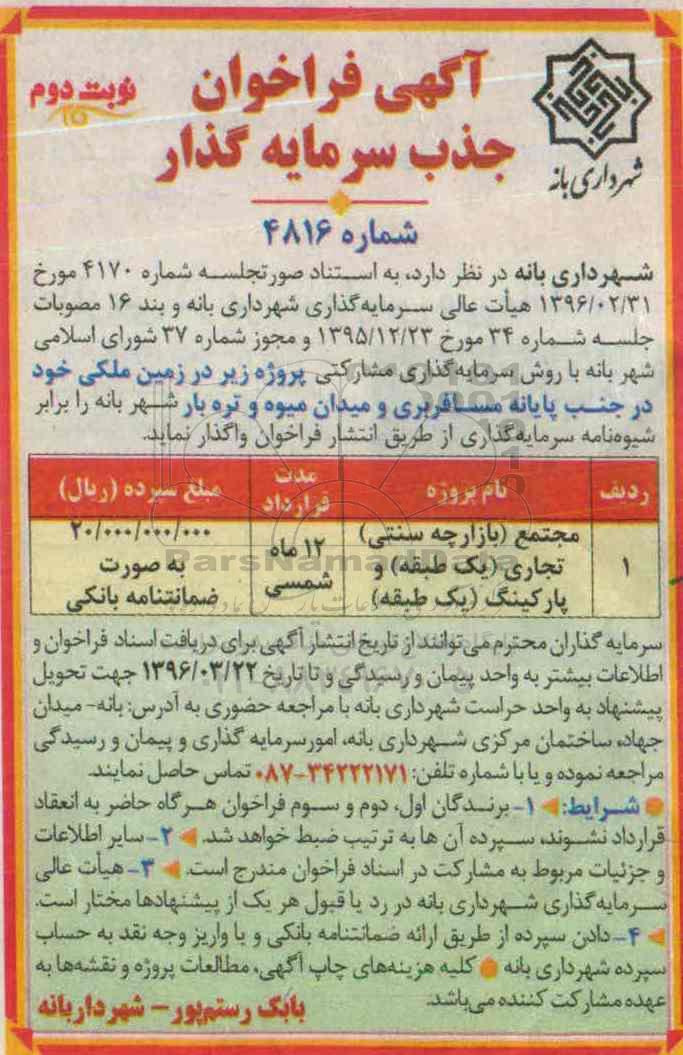 آگهی فراخوان
جذب سرمایه گذار
نوبت دوم
شهرداری بانه
شماره ۴۸۱۶
شهرداری بانه در نظر دارد، به استناد صورتجلسه شماره ۴۱۷۰ مورخ
۱۳۹۶/۰۲/۳۱ هیأت عالی سرمایه‌گذاری شهرداری بانه و بند ۱۶ مصوبات
جلسه شماره ۳۴ مورخ ۱۳۹۵/۱۲/۲۳ و مجوز شماره ۳۷ شورای اسلامی
شهر بانه با روش سرمایه‌گذاری مشارکتی پروژه زیر در زمین ملکی خود
در جنب پایانه مسافربری و میدان میوه و تره بار شهر بانه را برابر
شیوه‌نامه سرمایه‌گذاری از طریق انتشار فراخوان واگذار نماید.
ردیف نام پروژه مدت قرارداد مبلغ سپرده (ریال)
۱ مجتمع (بازارچه سنتی) تجاری (یک طبقه) و پارکینگ (یک طبقه) ۱۲ ماه شمسی ۲۰/۰۰۰/۰۰۰/۰۰۰ به صورت ضمانتنامه بانکی
ParsNamadData
سرمایه گذاران محترم می‌توانند از تاریخ انتشار آگهی برای دریافت اسناد فراخوان و
اطلاعات بیشتر به واحد پیمان و رسیدگی و تا تاریخ ۱۳۹۶/۰۳/۲۲ جهت تحویل
پیشنهاد به واحد حراست شهرداری بانه با مراجعه حضوری به آدرس: بانه- میدان
جهاد، ساختمان مرکزی شهرداری بانه، امور سرمایه گذاری و پیمان و رسیدگی
مراجعه نموده و یا با شماره تلفن: ۳۴۲۲۲۱۷۱-۰۸۷ تماس حاصل نمایند.
شرایط: ۱- برندگان اول، دوم و سوم فراخوان هرگاه حاضر به انعقاد
قرارداد نشوند، سپرده آن ها به ترتیب ضبط خواهد شد. ۲- سایر اطلاعات
و جزئیات مربوط به مشارکت در اسناد فراخوان مندرج است. ۳- هیأت عالی
سرمایه‌گذاری شهرداری بانه در رد یا قبول هر یک از پیشنهادها مختار است.
۴- دادن سپرده از طریق ارائه ضمانتنامه بانکی و یا واریز وجه نقد به حساب
سپرده شهرداری بانه کلیه هزینه‌های چاپ آگهی، مطالعات پروژه و نقشه‌ها به
عهده مشارکت کننده می‌باشد.
بابک رستم‌پور - شهردار بانه